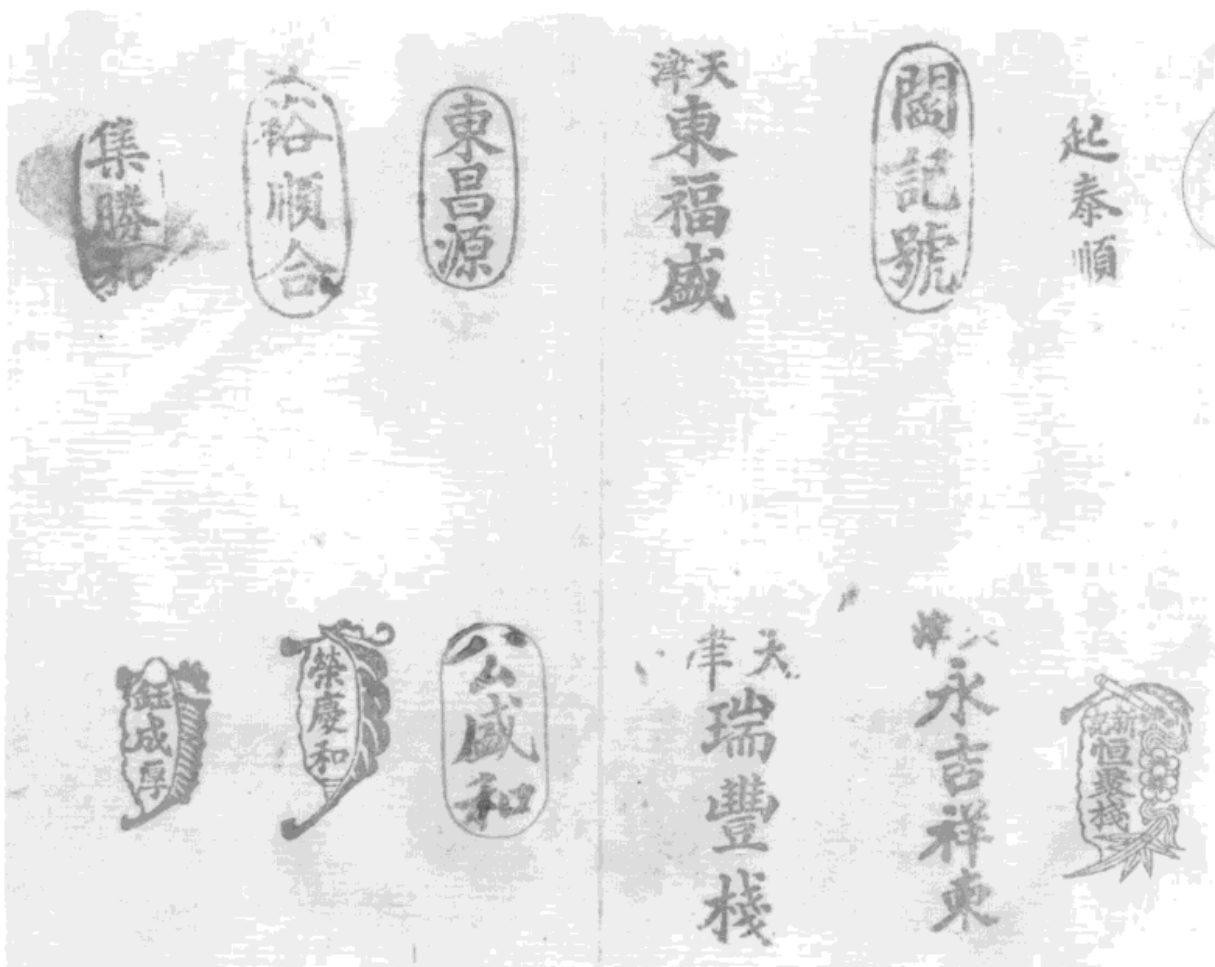 起泰順
閤記號
天津
東福盛
東昌源
裕順合
集勝和
新記
恒聚棧
天津
永吉祥東
天津
瑞豐棧
公盛和
榮慶和
鈺成厚